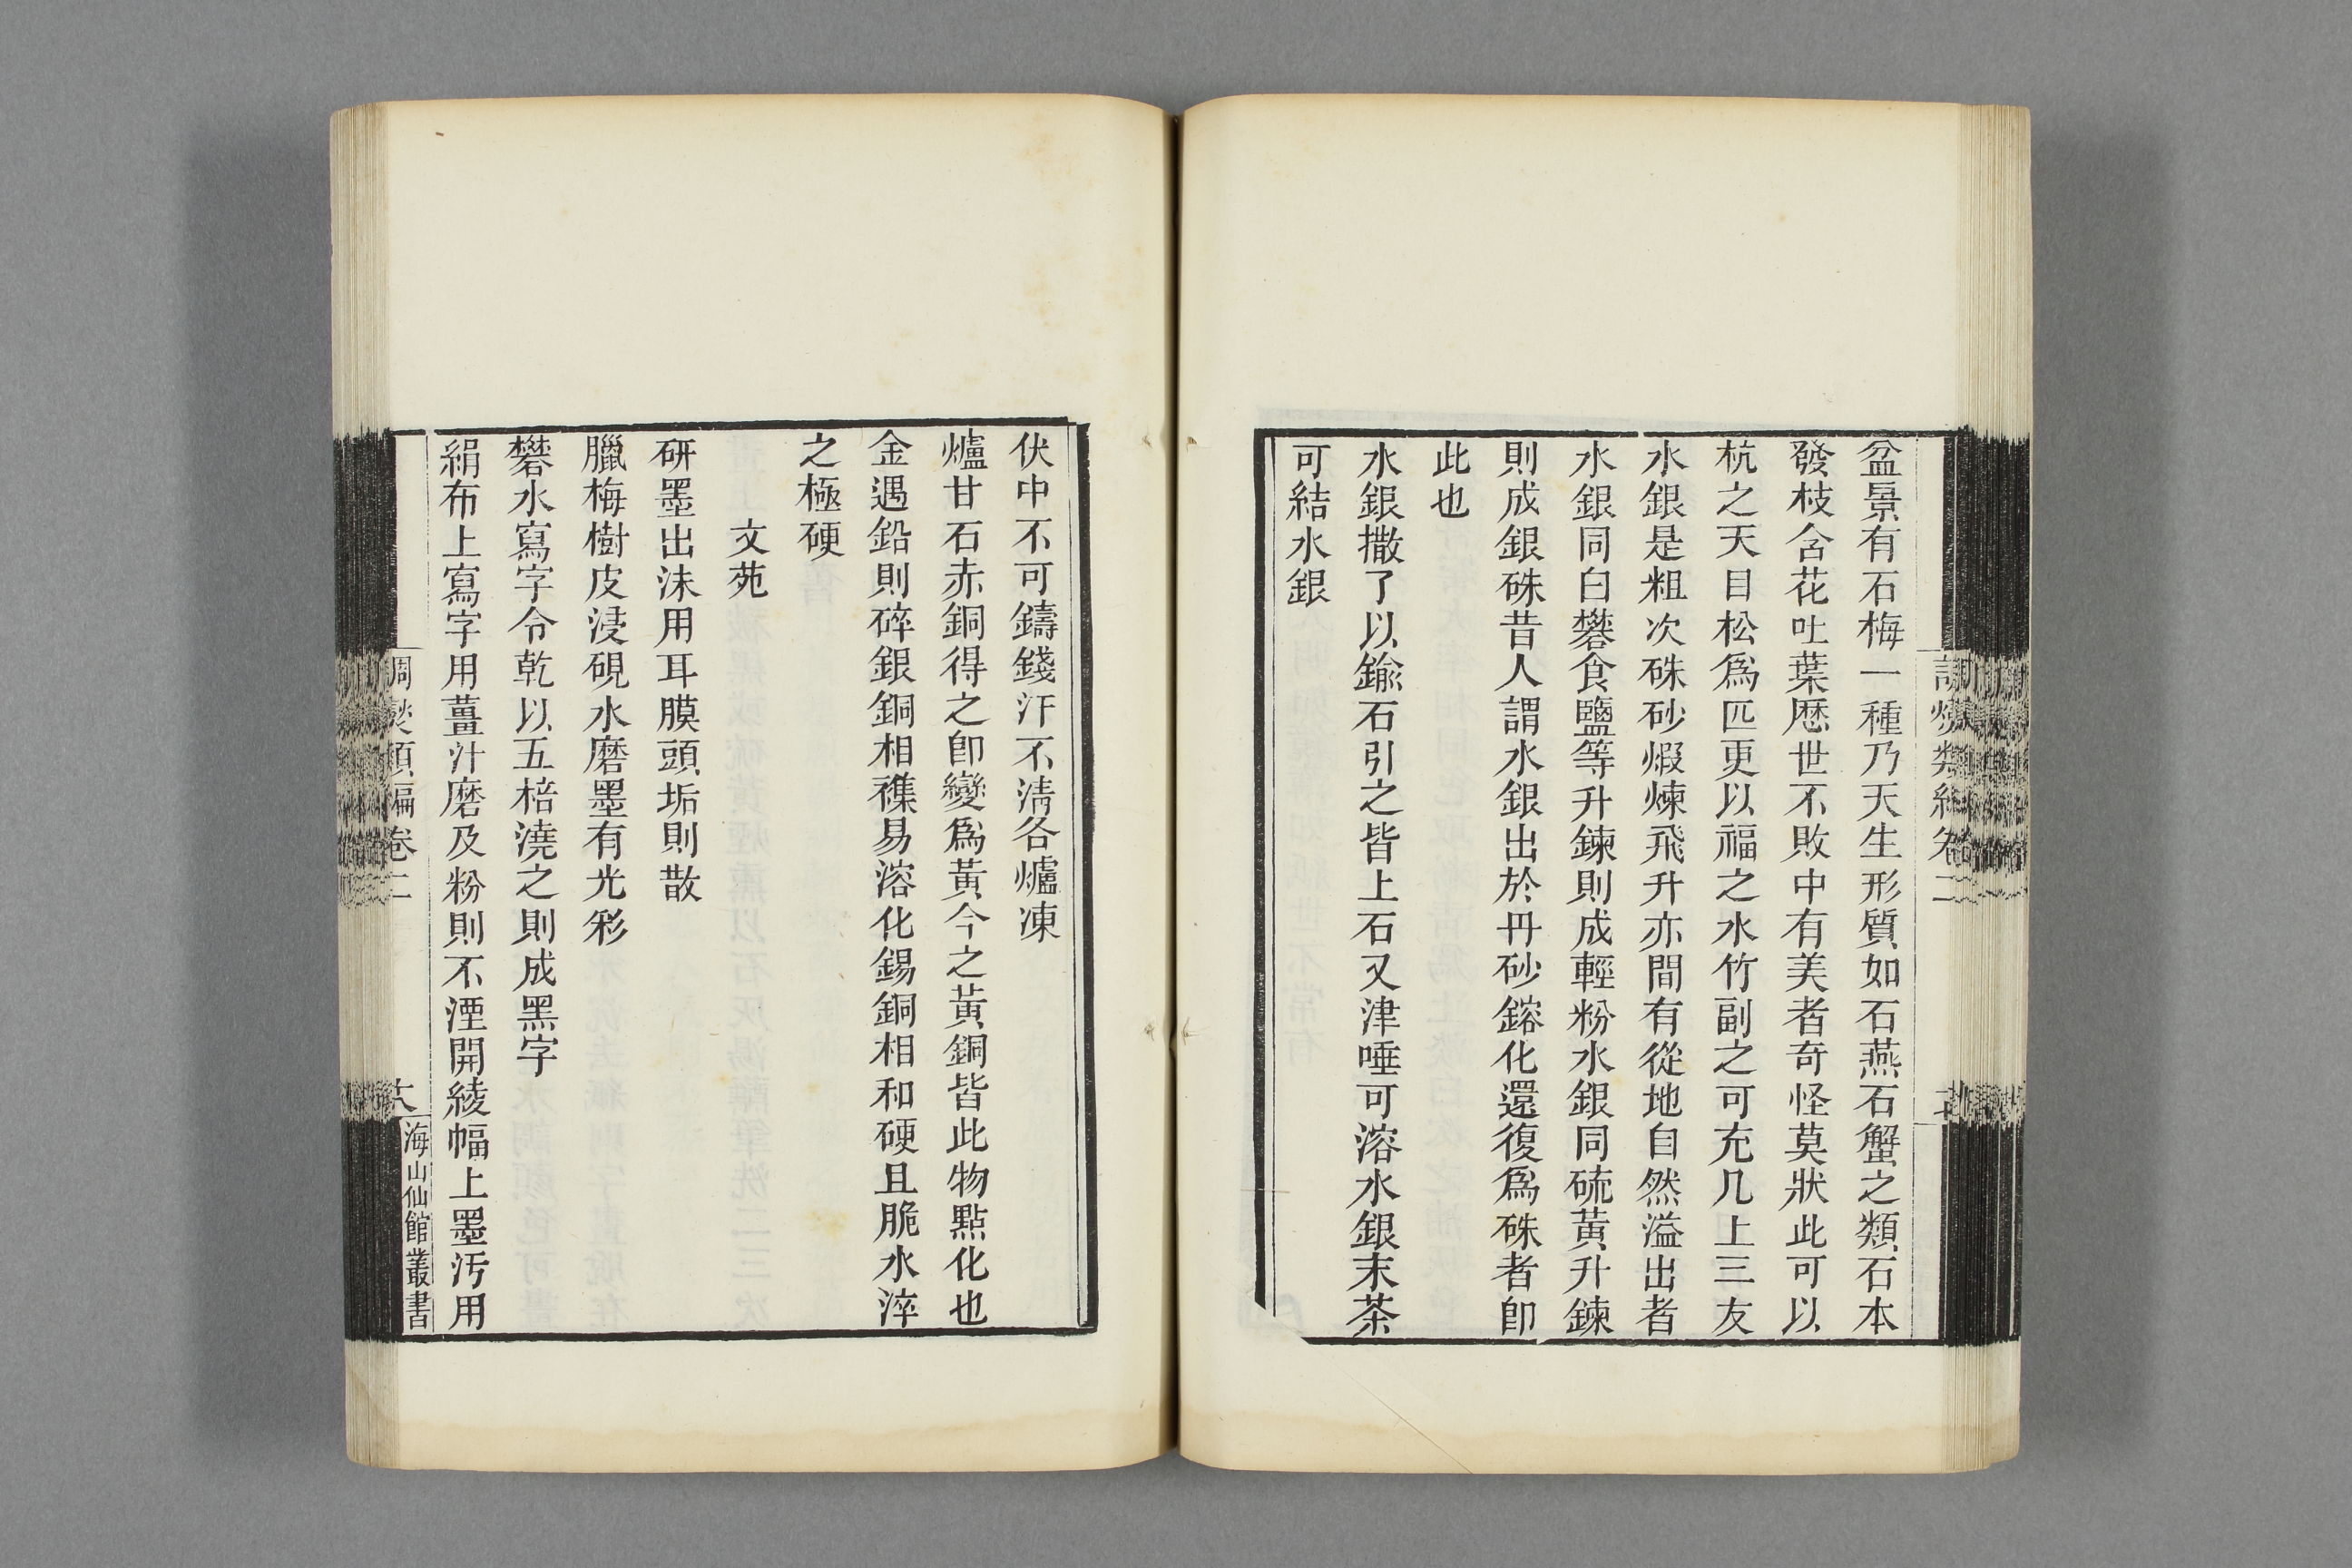 盆景有石梅一種乃天生形質如石燕石蟹之類石本
發枝含花吐葉歴世不敗中有美者奇怪莫狀此可以
杭之天目松爲匹更以福之水竹副之可充几上三友
水銀是粗次硃砂煅煉飛升亦間有從地自然溢出者
水銀同白礬食鹽等升鍊則成輕粉水銀同硫黃升鍊
則成銀硃昔人謂水銀出於丹砂鎔化還復爲硃者卽
此也
水銀撒了以鍮石引之皆上石又津唾可溶水銀末茶
可結水銀
伏中不可鑄錢汗不淸各爐凍
爐甘石赤銅得之卽變爲黃今之黃銅皆此物點化也
金遇鉛則碎銀銅相襍易溶化錫銅相和硬且脆水淬
之極硬
文苑
研墨出沫用耳膜頭垢則散
臘梅樹皮浸硯水磨墨有光彩
礬水寫字令乾以五棓澆之則成黑字
絹布上寫字用薑汁磨及粉則不湮開綾幅上墨汚用
調燮類編卷二
海山仙館叢書